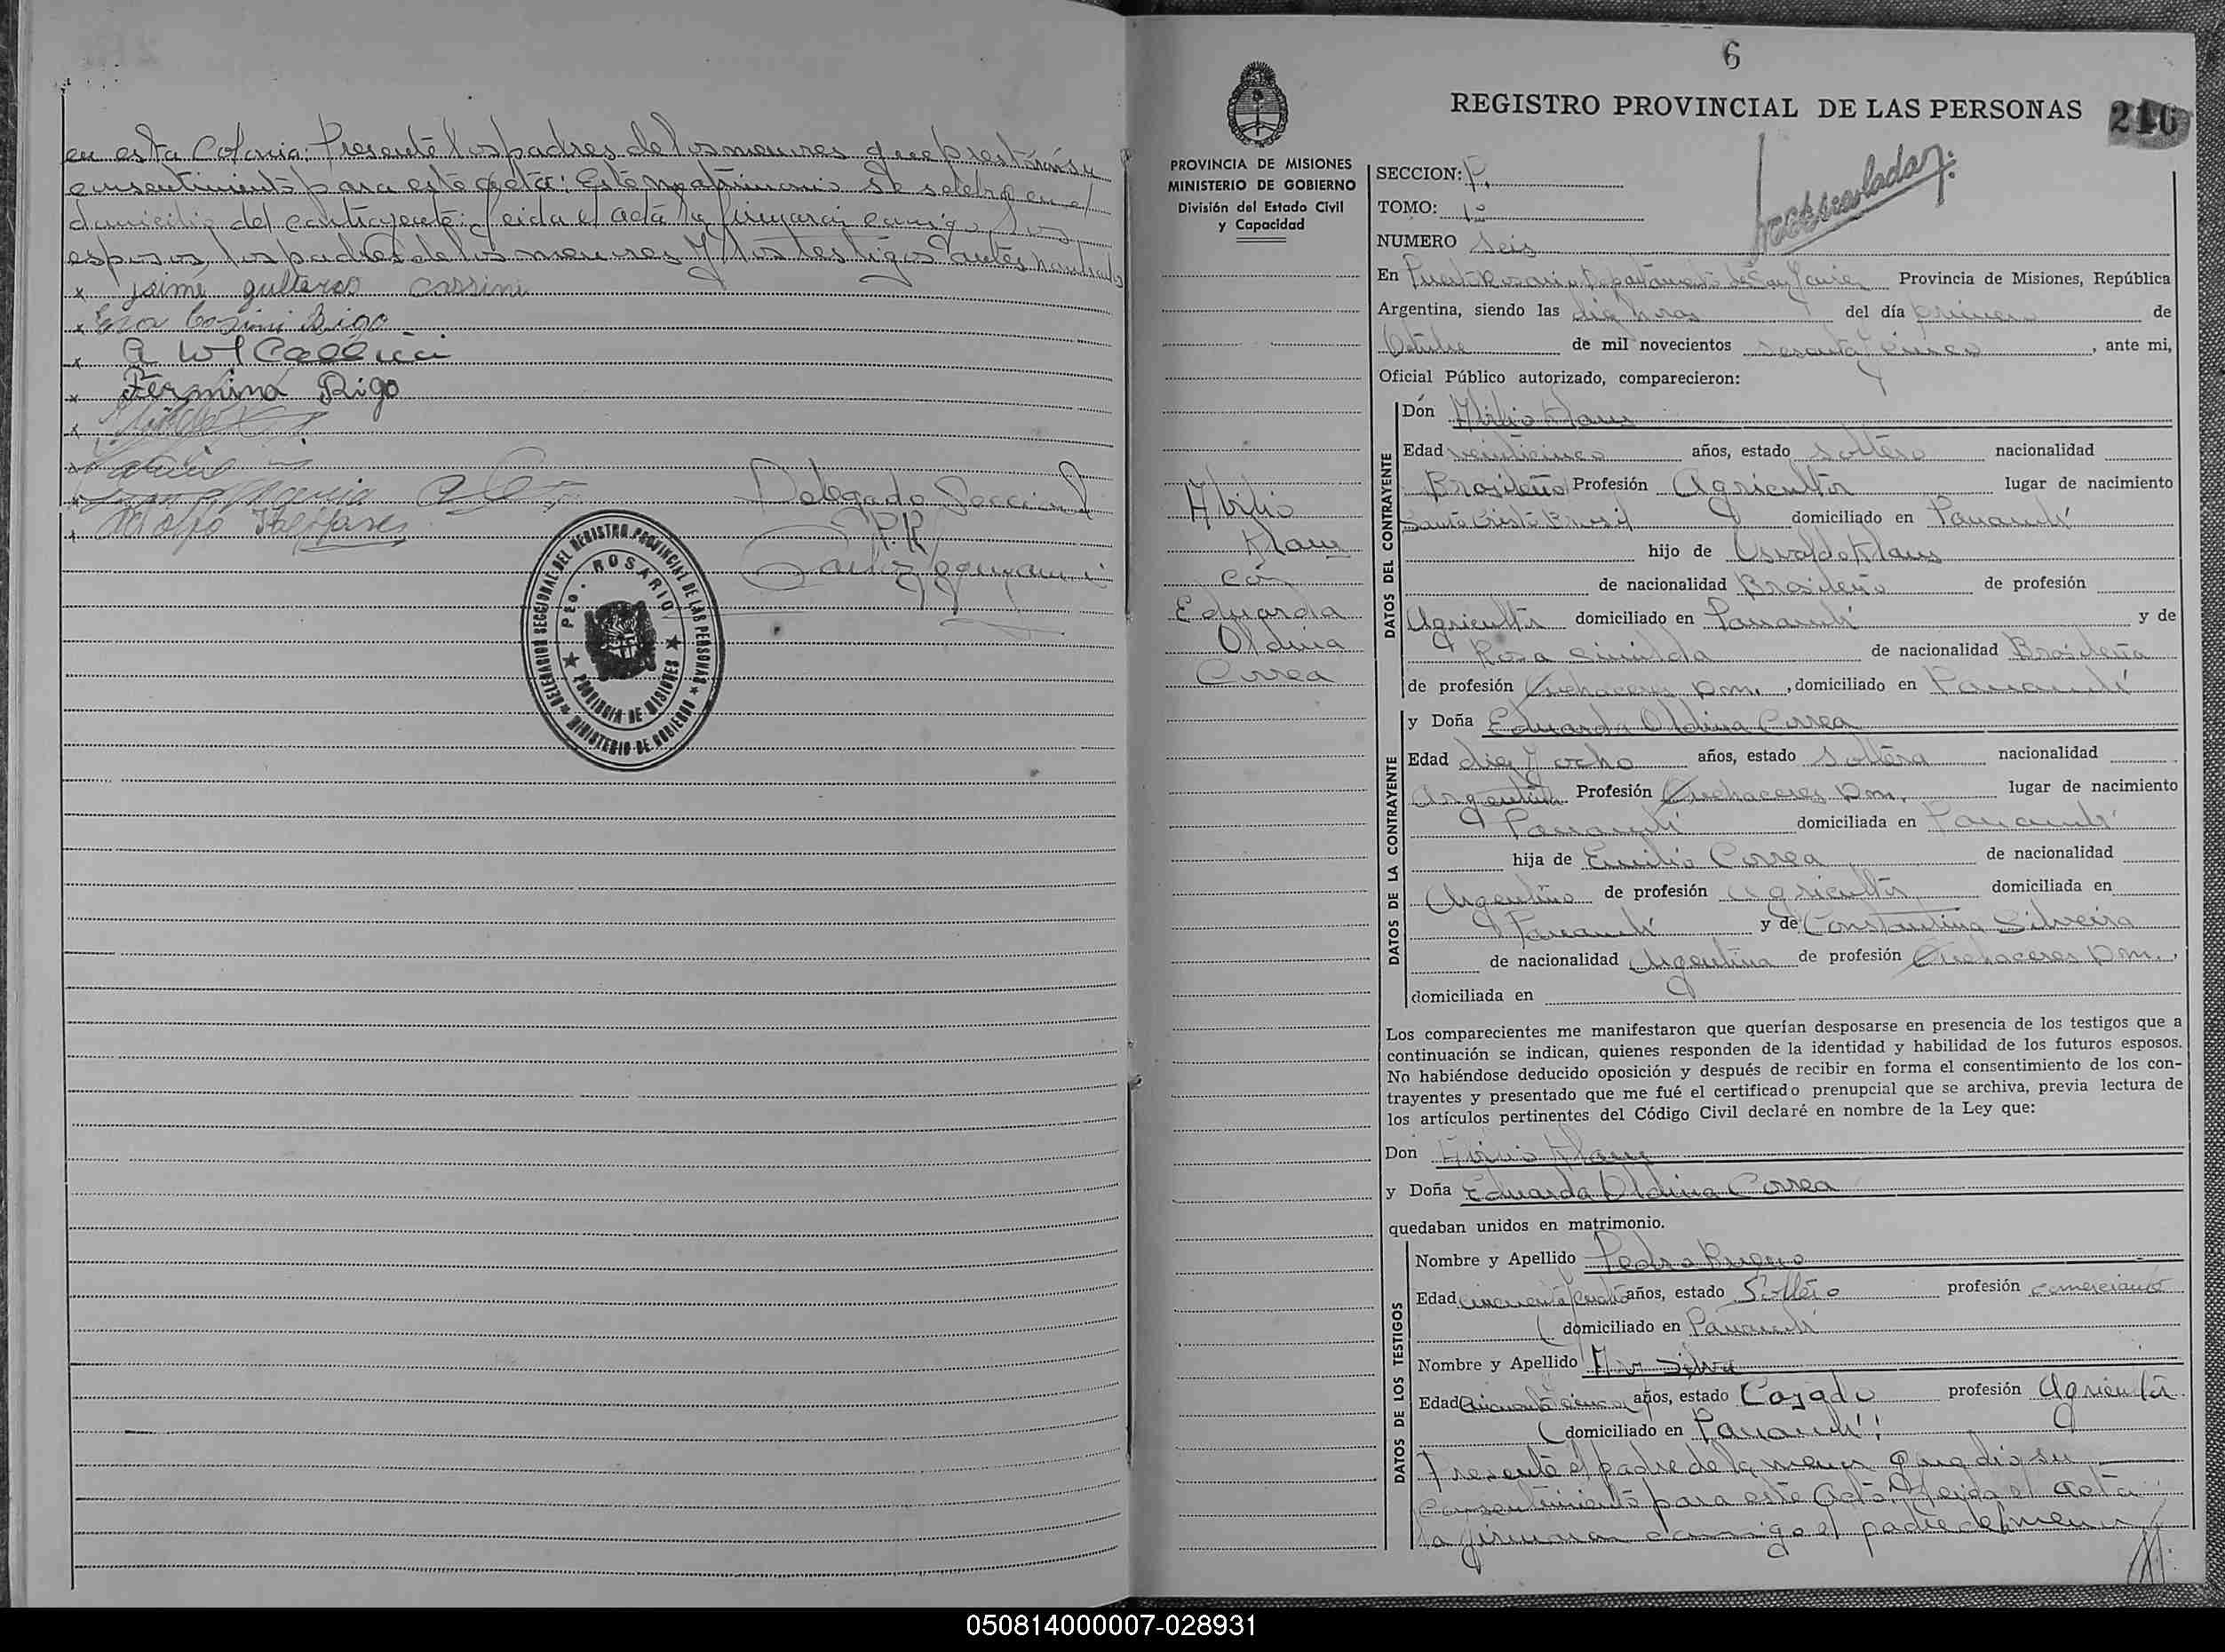 en esta Colonia: Presente los padres de los menores que prestarán su
consentimiento para este acto: Este matrimonio se celebra en el
domicilio del contrayente; leida el acta la firmaran conmigo los
esposos, los padres de los menores y los testigos antes nombrados
x jaime gullermo cassini
x Eva Casini Rigo
x
x Fermina Rigo
x
x
x
x
Delegado Seccional
P.R.
DELEGACION SECCIONAL DEL REGISTRO PROVINCIAL DE LAS PERSONAS
MINISTERIO DE GOBIERNO
PTO. ROSARIO
PROVINCIA DE MISIONES
6
REGISTRO PROVINCIAL DE LAS PERSONAS
216
PROVINCIA DE MISIONES
MINISTERIO DE GOBIERNO
División del Estado Civil
y Capacidad
Abilio
Klaus
con
Eduarda
Oldina
Correa
SECCION: P.
TOMO: 1º
NUMERO Seis
En Puerto Rosario Departamento de San Javier Provincia de Misiones, República
Argentina, siendo las diez horas del día primero de
Octubre de mil novecientos sesenta y cinco, ante mi,
Oficial Público autorizado, comparecieron:
DATOS DEL CONTRAYENTE
Don Abilio Klaus
Edad veinticinco años, estado soltero nacionalidad
Brasileño Profesión Agricultor lugar de nacimiento
Santo Cristo Brasil domiciliado en Panambí
hijo de Osvaldo Klaus
de nacionalidad Brasileño de profesión
Agricultor domiciliado en Panambí y de
Rosa de nacionalidad Brasileña
de profesión Quehaceres Dom., domiciliado en Panambí
DATOS DE LA CONTRAYENTE
y Doña Eduarda Oldina Correa
Edad diez y ocho años, estado soltera nacionalidad
Argentina Profesión Quehaceres Dom. lugar de nacimiento
Panambí domiciliada en Panambí
hija de Emilio Correa de nacionalidad
Argentino de profesión Agricultor domiciliada en
Panambí y de Constantina Silveira
de nacionalidad Argentina de profesión Quehaceres Dom.,
domiciliada en
Los comparecientes me manifestaron que querían desposarse en presencia de los testigos que a
continuación se indican, quienes responden de la identidad y habilidad de los futuros esposos.
No habiéndose deducido oposición y después de recibir en forma el consentimiento de los con-
trayentes y presentado que me fué el certificado prenupcial que se archiva, previa lectura de
los artículos pertinentes del Código Civil declaré en nombre de la Ley que:
Don Abilio Klaus
y Doña Eduarda Oldina Correa
quedaban unidos en matrimonio.
DATOS DE LOS TESTIGOS
Nombre y Apellido Pedro
Edad cincuenta y cuatro años, estado Soltero profesión comerciante
domiciliado en Panambí
Nombre y Apellido Silva
Edad años, estado Casado profesión Agricultor
domiciliado en Panambí
Presente el padre de la menor que dio su
consentimiento para este Acto. Leida el acta
la firmaran conmigo el padre del menor
050814000007-028931